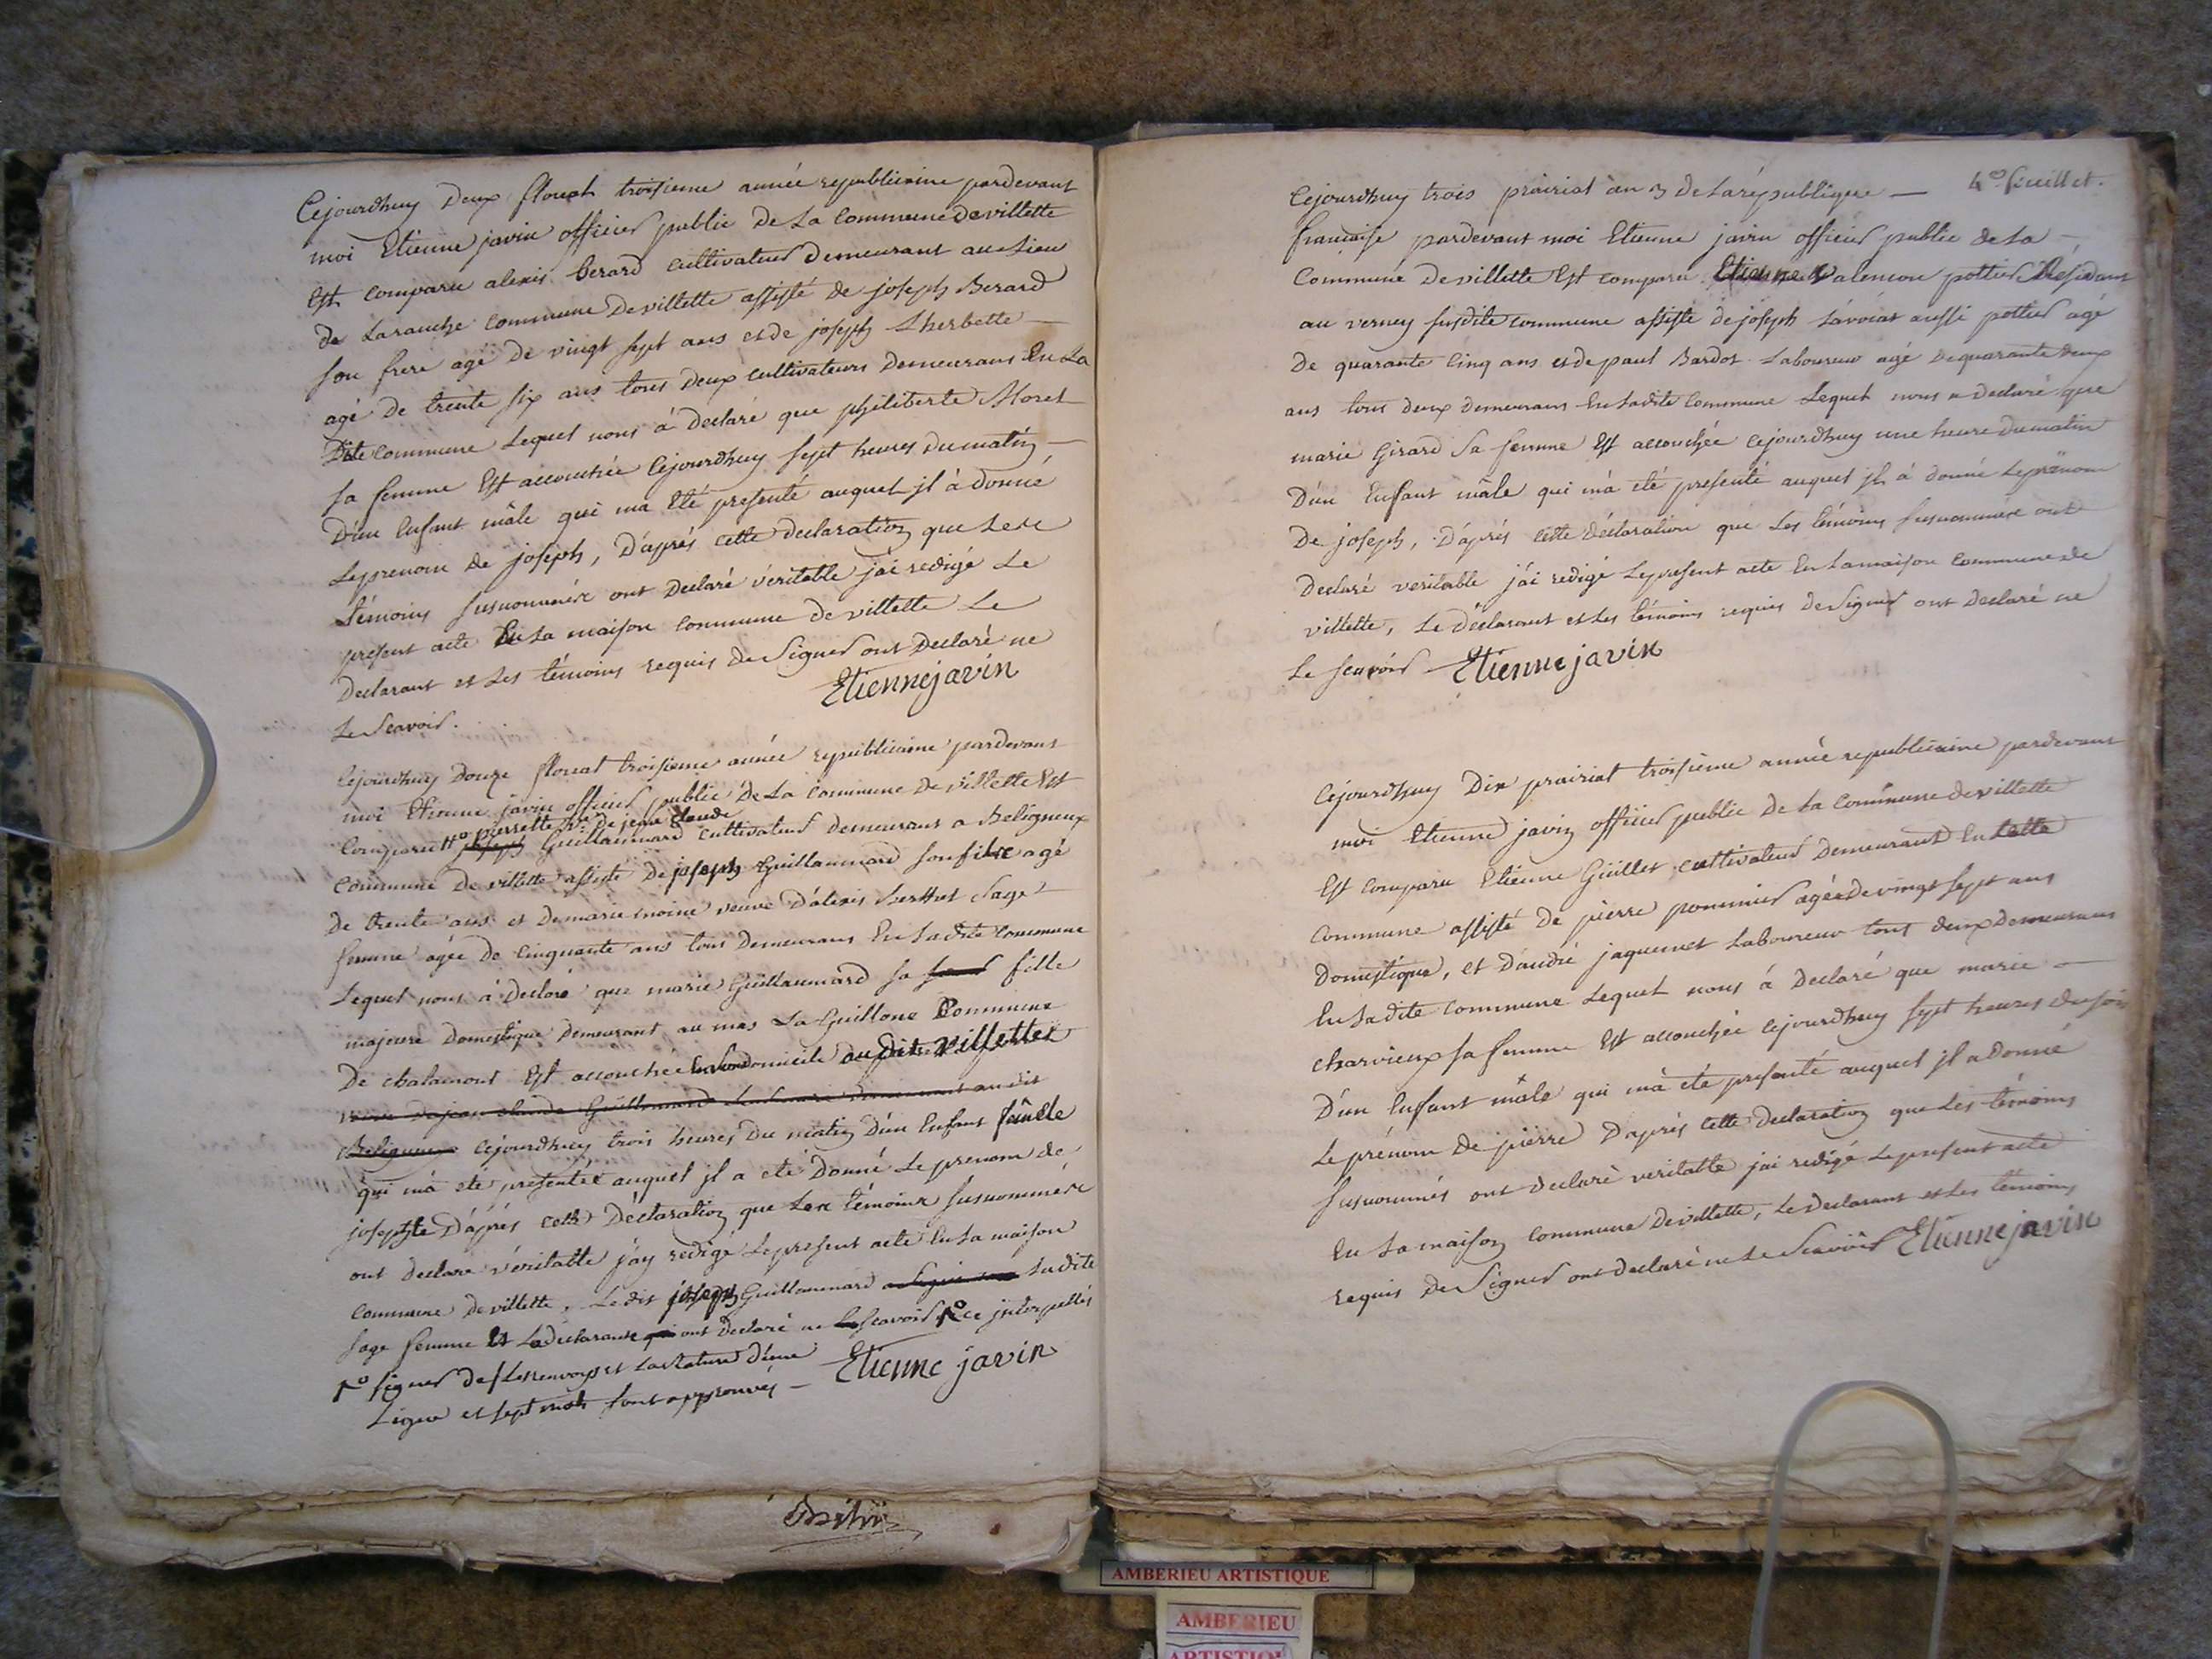 Cejourdhuy Deux floreal troisieme année republicaine pardevant
moi Etienne javin officier public de la Commune de villette
Est comparu alexis berard cultivateur demeurant au lieu
de Laranche commune de villette assisté de joseph Berard
son frere agé de vingt sept ans et de joseph Lherbette
agé de trente six ans tous deux cultivateurs demeurans En La
Dite commune Lequel nous à declaré que philiberte Morel
sa femme Est accouchée Cejourdhuy sept heures du matin
D'un Enfant mâle qui ma Eté presenté auquel jl à donné
Le prenom de joseph, D'aprés cette declaration que Les
témoins susnommés ont declaré véritable jai redigé Le
present acte En La maison commune de villette Le
Declarant et Les témoins requis de Signer ont Declaré ne
Le Scavoir.
Etienne javin
Cejourdhuy Douze floreal troisieme année republicaine pardevant
moi Etienne javin officier public de La Commune de villette Est
pierrette De jean Claude
Comparu joseph Guillaumard cultivateur demeurant a Beligneux
Commune de villette assisté De joseph Guillaumard son fils agé
de trente ans et de marie moine veuve D'alexis Berthet Sage
femme agée de Cinquante ans tous demeurans En Ladite Commune
Lequel nous à Declaré que marie Guillaumard sa fille
majeure Domestique Demeurant au mas La Guillone Commune
De chalamont Est accouchée En son domicile audit villette
veuve de jean claude Guillaumard demeurant audit
Beligneux Cejourdhuy trois heures Du matin D'un Enfant femelle
qui m'à eté presentée auquel jl a eté Donné Le prenom de
josephte D'aprés cette Declaration que Les témoins susnommés
ont Declaré véritable j'ay redigé Le present acte En La maison
commune de villette, Ledit joseph Guillaumard Ladite
Sage femme Et La declarante ont Declaré ne Scavoir de ce jnterpellés
signer Les renvoys et La rature D'une
Ligne et sept mots sont approuvés
Etienne javin
4e feuillet.
Cejourdhuy trois prairial an 3 de La republique
francaise pardevant moi Etienne javin officier public de La
Commune De villette Est comparu Etienne valencon pottier Residant
au verney susdite commune assisté de joseph Savoiat aussi pottier agé
de quarante Cinq ans et de paul Bardot Laboureur agé de quarante deux
ans tous deux demeurans En Ladite Commune Lequel nous a Declaré que
marie Girard Sa femme Est accouchée Cejourdhuy une heure du matin
D'un Enfant mâle qui m'à eté presenté auquel jl à donné Le prénom
De joseph, D'aprés Cette déclaration que Les témoins susnommés ont
Declaré veritable j'ai redigé Le present acte En La maison commune de
villette, Le Déclarant et Les témoins requis de Signer ont Declaré ne
Le scavoir
Etienne javin
Cejourdhuy Dix prairial troisieme année republicaine pardevant
moi Etienne javin officier public de La Commune de villette
Est comparu Etienne Guillet cultivateur Demeurant En Cette
Commune assisté De pierre pommier agé de vingt sept ans
Domestique, et D'andré jaquemet Laboureur tous deux demeurans
En La dite Commune Lequel nous à Declaré que marie
charvieux sa femme Est accouchée Cejourdhuy sept heures du soir
D'un Enfant mâle qui m'à eté presenté auquel jl a Donné
Le prénom De pierre D'aprés Cette Declaration que Les témoins
Susnommés ont declaré veritable jai redigé Le present acte
En La maison Commune De villette, Le Declarant et Les témoins
requis De Signer ont declaré ne Le Scavoir
Etienne javin
AMBERIEU ARTISTIQUE
AMBERIEU
ARTISTIQUE